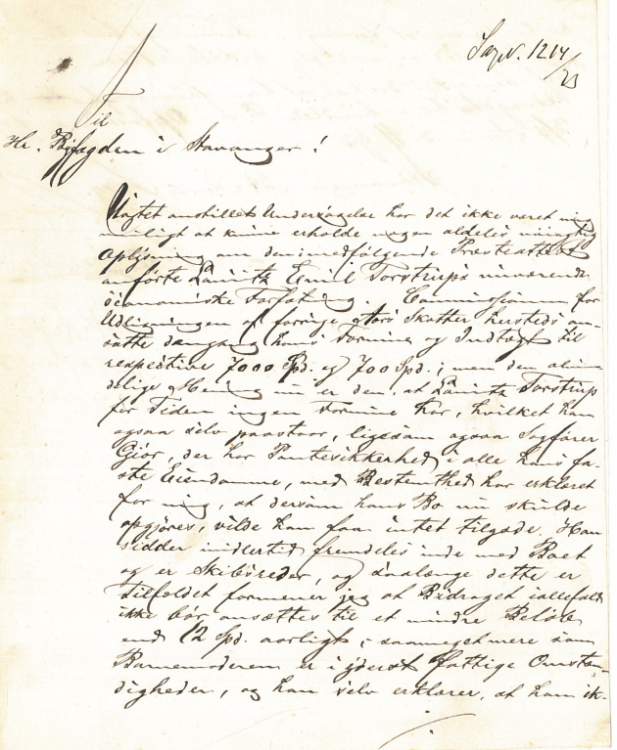 Sag N. 1214/23
Til
Hr. Byfogden i Stavanger!
Uagtet anstillet Undersøgelse har det ikke været mig
muligt at kunne erholde nogen aldeles nøiagtig
Oplysning om den i medfølgende Præsteattest
anførte Lauritz Emil Torstrups nuværende
öconomiske Forfatning. Commissionen for
Udligningen af forrige Aars Skatter hersteds an-
satte dengang hans Formue og Indtægt til
respective 7000 Spd. og 700 Spd.; men den almin-
delige Mening nu er den, at Lauritz Torstrup
for Tiden ingen Formue har, hvilket han
ogsaa selv paastaar, ligesom ogsaa Sagfører
Giör, der har Pantesikkerhed i alle hans fa-
ste Eiendomme, med Bestemthed har erklæret
for mig, at dersom hans Bo nu skulde
opgjøres, vilde han faa intet tilgode. Han
sidder imidlertid fremdeles inde med Boet
og er Skibsreder, og saalænge dette er
Tilfældet formener jeg at Bidraget iallefald
ikke bør ansættes til et mindre Beløb
end 12 Spd. aarligt, saameget mere som
Barnemoderen er i yderst fattige Omstæn-
digheder, og han selv erklærer, at han ik-